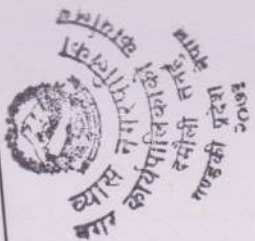 व्यास नगरपालिका
नगर कार्यपालिकाको कार्यालय
दमौली तनहुँ
गण्डकी प्रदेश नेपाल
२०७४